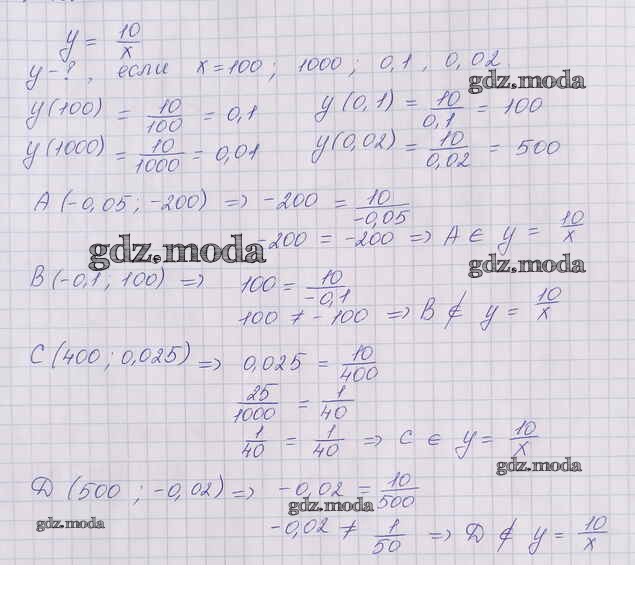 y = 10/x
y - ? , если x = 100 ; 1000 ; 0,1 , 0,02
gdz.moda
y(100) = 10/100 = 0,1 y(0,1) = 10/0,1 = 100
y(1000) = 10/1000 = 0,01 y(0,02) = 10/0,02 = 500
A(-0,05 ; -200) => -200 = 10/-0,05
-200 = -200 => A ∈ y = 10/x
gdz.moda
gdz.moda
B(-0,1 , 100) => 100 = 10/-0,1
100 ≠ -100 => B ∉ y = 10/x
C(400 ; 0,025) => 0,025 = 10/400
25/1000 = 1/40
1/40 = 1/40 => C ∈ y = 10/x
gdz.moda
D(500 ; -0,02) => -0,02 = 10/500
gdz.moda
gdz.moda
-0,02 ≠ 1/50 => D ∉ y = 10/x